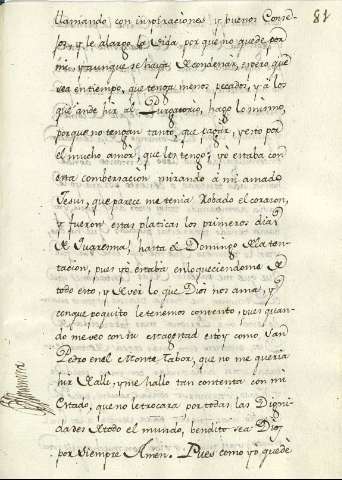 81
llamando, con inspiraciones, y buenos Conse-
jos, y le alargo la vida, por que no quede por
mi, y aunque se haya de condenar, espero que
sea en tiempo, que tenga menos pecados, y a los
que ande hir al Purgatorio, hago lo mismo,
porque no tengan tanto, que pagar, y esto por
el mucho amor, que les tengo; yo estaba con
esta combersacion mirando à mi amado
Jesus, que parece me tenia Robado el corazon,
y fueron estas platicas los primeros dias
de Quaresma, hasta el Domingo de la ten-
tacion, pues yo estaba enloqueciendome de
todo esto, y de ver lo que Dios nos ama, y
conque poquito le tenemos contento, pues quan-
do me veo con su Magestad estoy como San
Pedro en el Monte Tabor, que no me queria
hir de alli, y me hallo tan contenta con mi
Estado, que no le trocara por todas las Digni-
dades de todo el mundo, bendito sea Dios
por siempre Amen. Pues como yo quedè